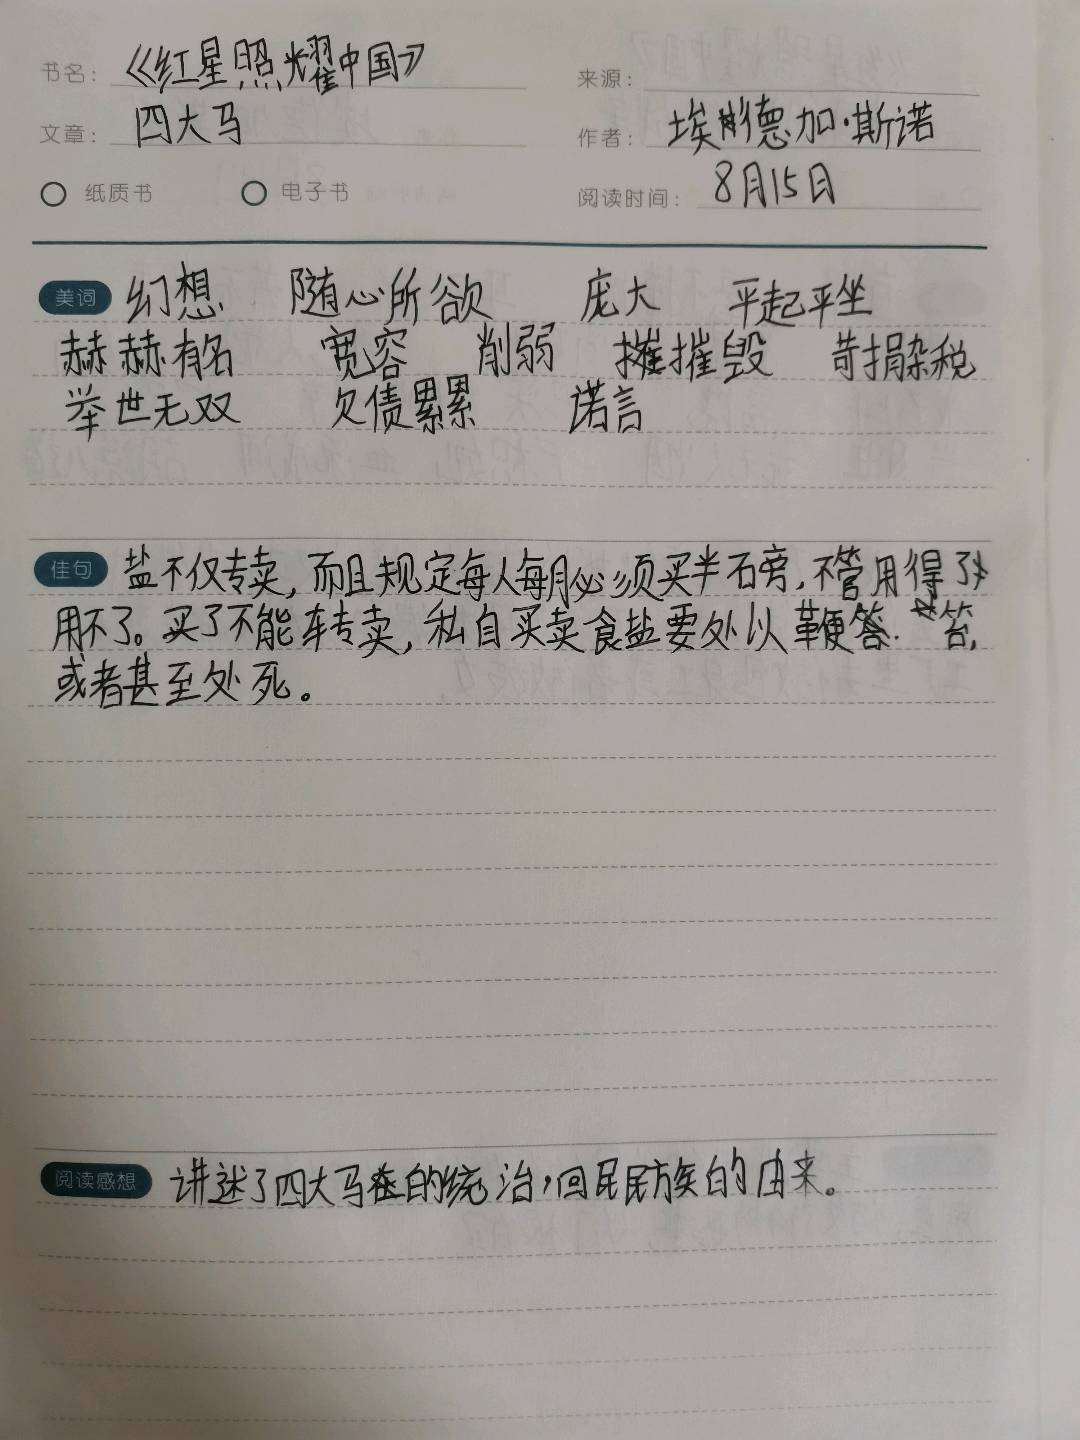 书名：《红星照耀中国》 来源：
文章：四大马 作者：埃德加·斯诺
纸质书 电子书 阅读时间：8月15日
美词 幻想 随心所欲 庞大 平起平坐
赫赫有名 宽容 削弱 摧毁 苛捐杂税
举世无双 欠债累累 诺言
佳句 盐不仅专卖，而且规定每人每月必须买半石旁，不管用得了
用不了。买了不能转卖，私自买卖食盐要处以鞭笞，
或者甚至处死。
阅读感想 讲述了四大马的统治，回民民族的由来。